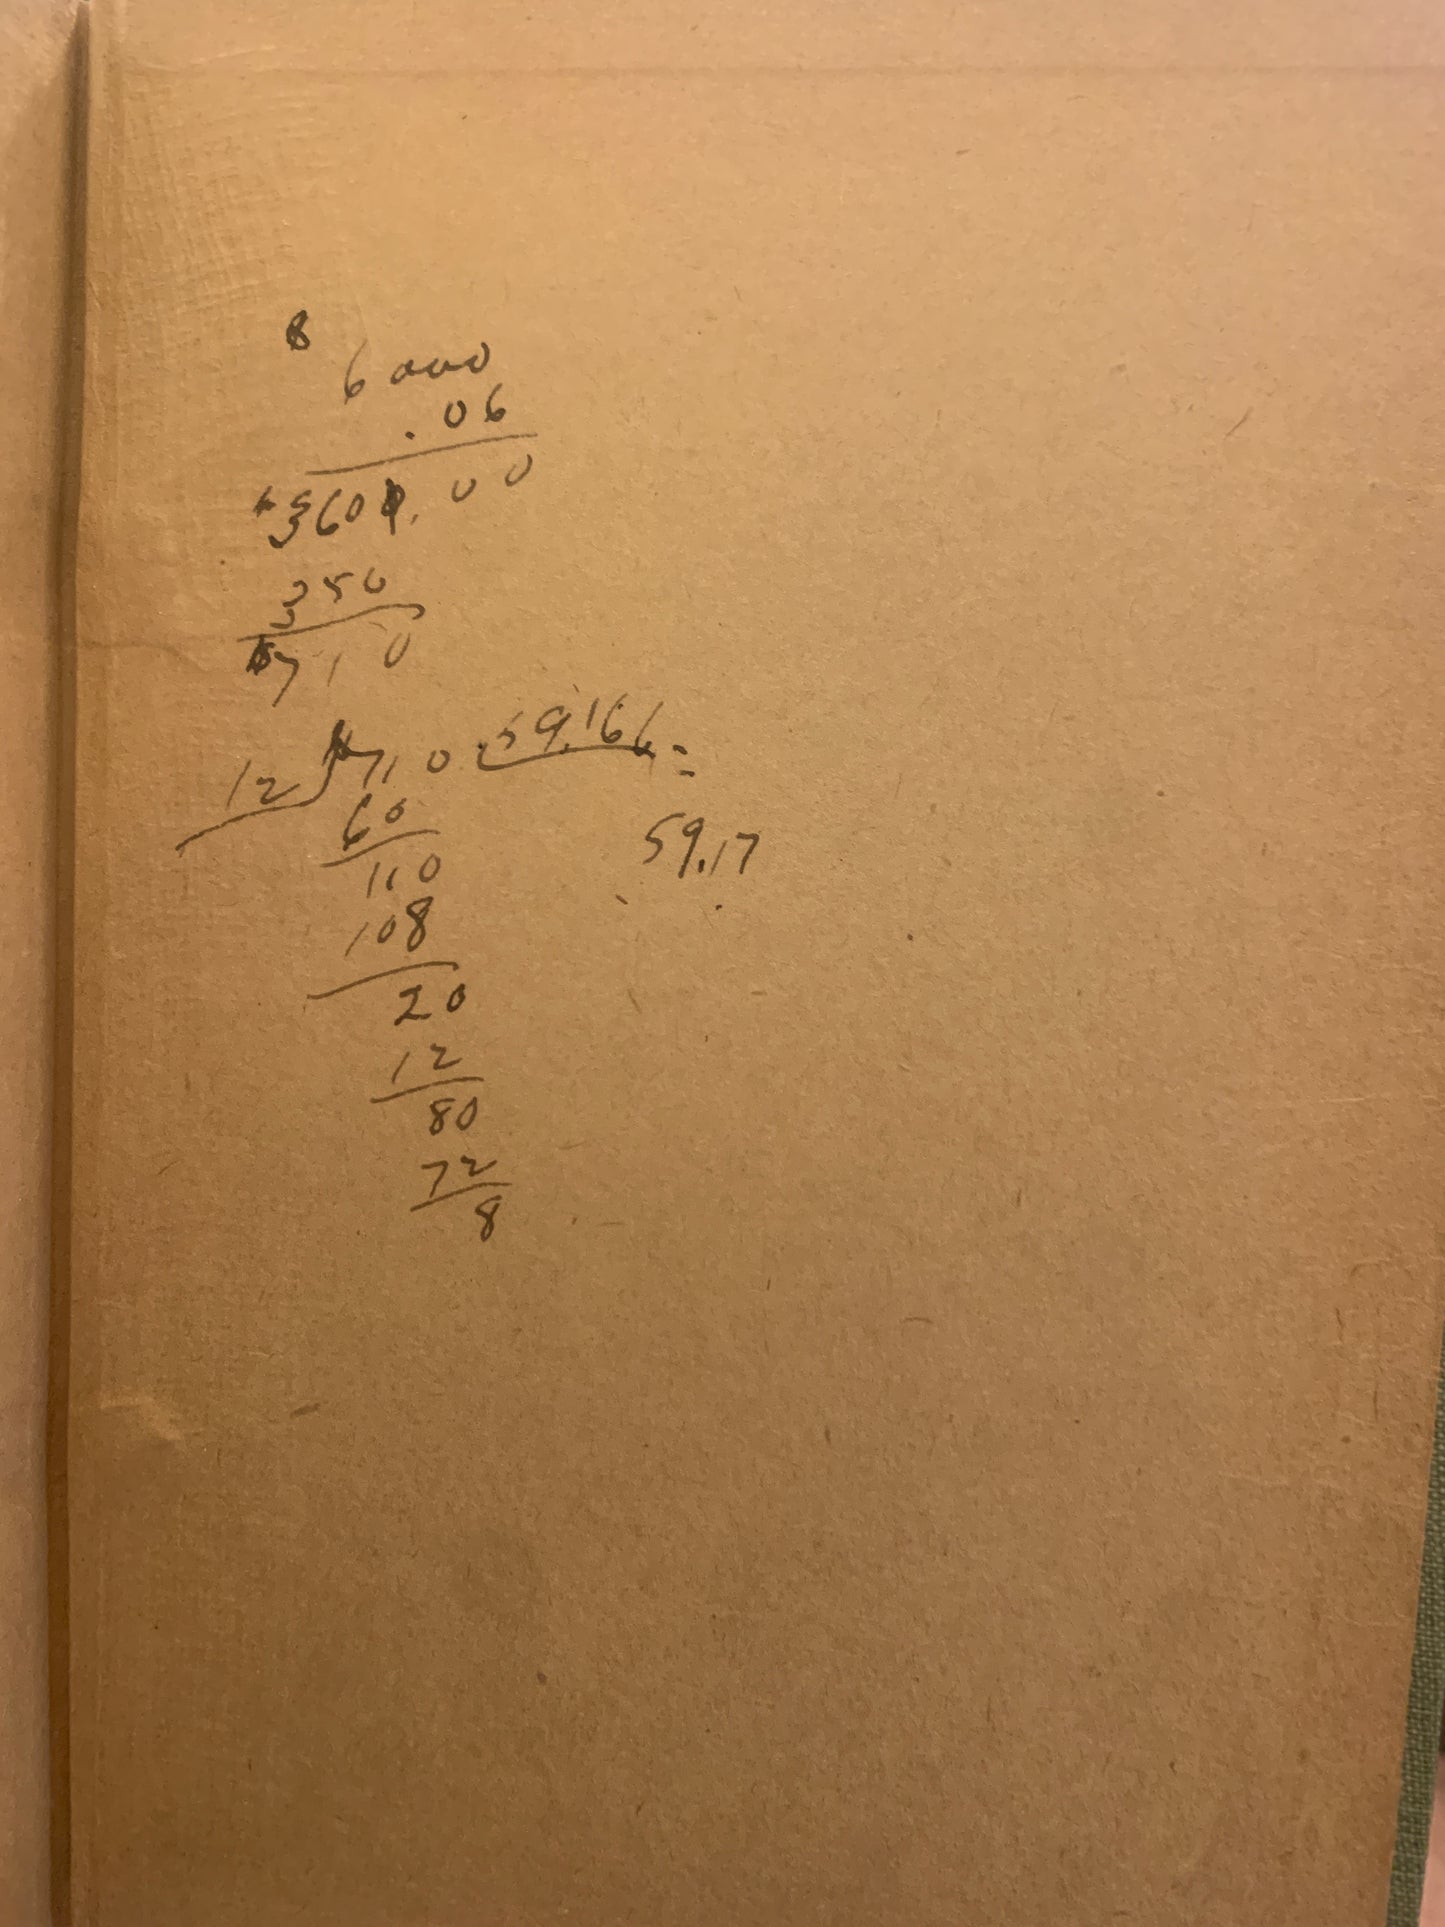 8
6000
.06
360.00
350
710
12 710 59.166 =
60
59.17
110
108
20
12
80
72
8